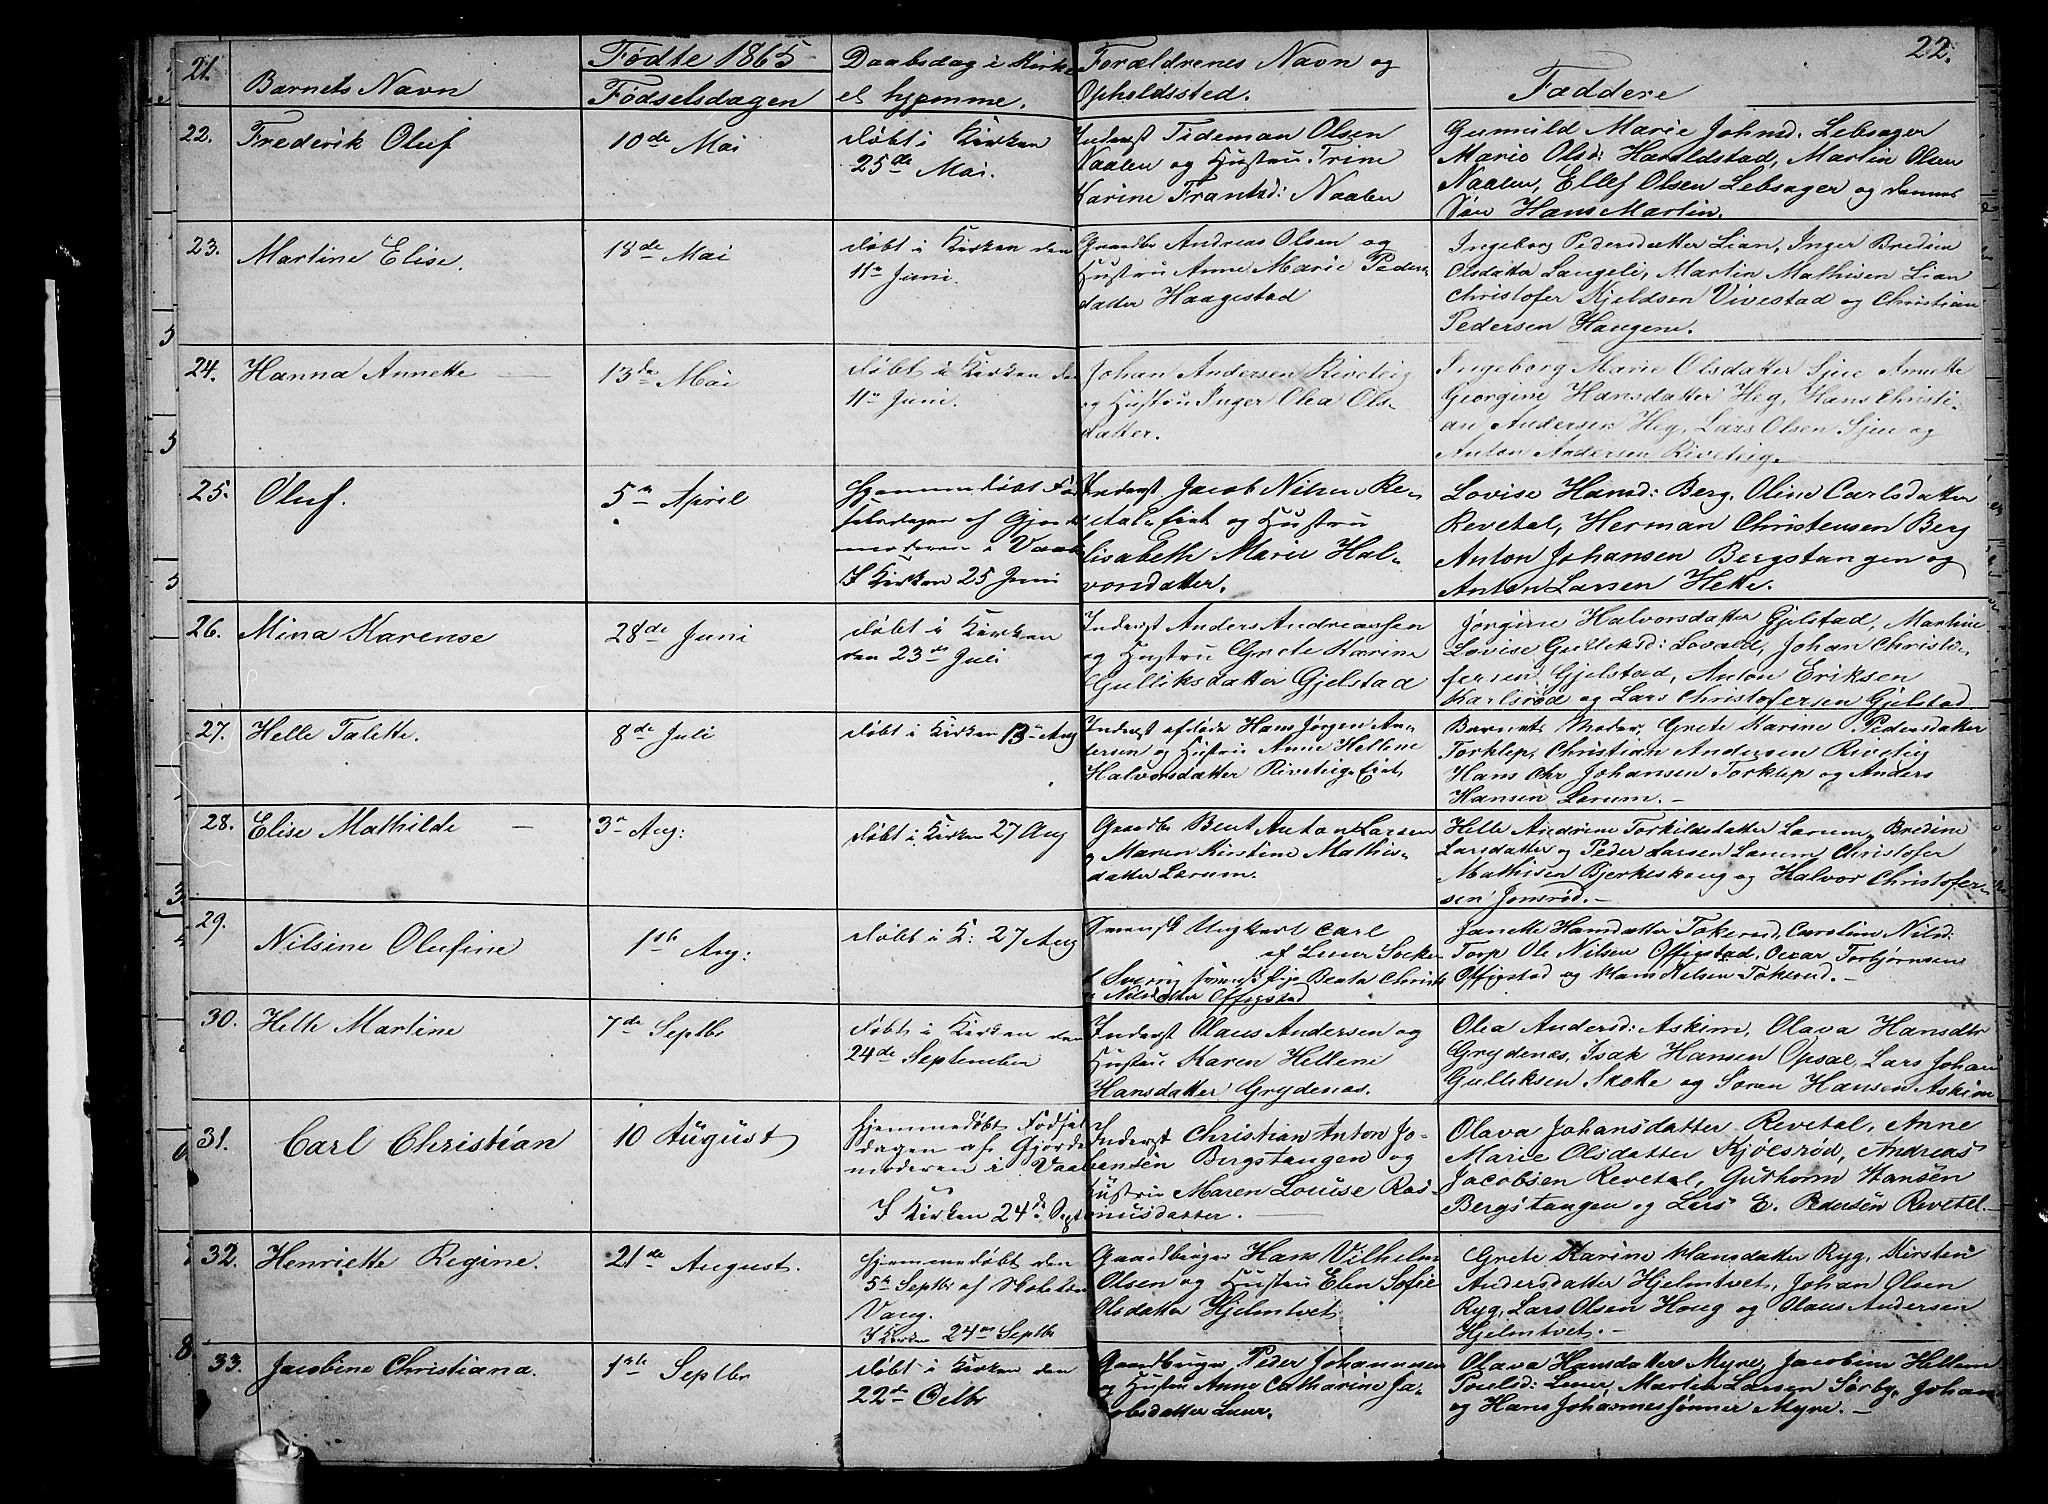 21.
22.
Fødte 1865
Barnets Navn
Fødselsdagen
Daabsdag i Kirke
el hjemme.
Forældrenes Navn og
Opholdssted.
Faddere
22. Frederik Oluf
10de Mai
døbt i Kirken
25de Mai.
Inderst Tideman Olsen
Naalen og Hustru Trine
Karine Frantsd: Naalen
Gunnild Marie Johnsd. Lebsager
Marie Olsd: Haraldstad, Martin Olsen
Naalen, Ellef Olsen Lebsager og dennes
Søn Hans Martin.
23. Martine Elise.
18de Mai
døbt i Kirken den
11te Juni.
Gaardbr Andreas Olsen og
Hustru Anne Marie Peders-
datter Haagestad
Ingeborg Pedersdatter Lian, Inger Bredine
Olsdatter Langeli, Martin Mathisen Lian
Christofer Kjeldsen Vivestad og Christian
Pedersen Haugene.
24. Hanna Annette
13de Mai
døbt i Kirken den
11te Juni.
Johan Andersen Riveteig
og Hustru Inger Olea Ols-
datter.
Ingeborg Marie Olsdatter Sjue Annette
Georgine Hansdatter Heg, Hans Christi-
an Andersen Heg, Lars Olsen Sjue og
Anton Andersen Riveteig.
25. Oluf.
5te April
Hjemmedøbt Fød
selsdagen af Gjorde
moderen i Vaale
I Kirken 25 Juni
Inderst Jacob Nilsen Re-
vetal-eiet og Hustru
Elisabeth Marie Hal-
vorsdatter.
Lovise Hansd: Berg, Oline Carlsdatter
Revetal, Herman Christensen Berg
Anton Johansen Bergstangen og
Anton Larsen Hette.
26. Mina Karense
28de Juni
døbt i Kirken
den 23de Juli
Inderst Anders Andreassen
og Hustru Grete Karine
Gulliksdatter Gjelstad
Jørgine Halvorsdatter Gjelstad, Martine
Lovise Gulliksd: Lovald, Johan Christo-
fersen Gjelstad, Anton Eriksen
Karlsrød og Lars Christofersen Gjelstad
27. Helle Talette.
8de Juli
døbt i Kirken 13te Aug
Inderst afdøde Hans Jørgen An-
dersen og Hustru Anne Hellene
Halvorsdatter Riveteig-Eiet
Barnets Moder, Grete Karine Pedersdatter
Torklep, Christian Andersen Riveteig
Hans Chr Johansen Torklep og Anders
Hansen Lorum. —
28. Elise Mathilde —
3te Aug:
døbt i Kirken 27 Aug
Gaardbr Bent Anton Larsen
og Maren Kirstine Mathis-
datter Lærum.
Helle Andrine Torkildsdatter Lærum, Bredine
Larsdatter og Peder Larsen Lærum Christofer
Mathisen Bjerkeskoug og Halvor Christofer-
sen Jonsrød. —
29. Nilsine Olufine
1ste Aug:
døbt i K: 27 Aug
Svensk Ungkarl Carl
Beata Christi
Nilsdatter Offigstad
Janette Hansdatter Tokerød, Caroline Nilsd:
Torp Ole Nilsen Offigstad, Oscar Torbjørnsen
Offigstad og Hans Nilsen Tokerød. —
30. Helle Martine
7de Septbr
døbt i Kirken den
24de September
Inderst Olaus Andersen og
Hustru Karen Hellene
Hansdatter Grydenæs.
Olea Andersd: Askim, Olava Hansdtr
Grydenæs, Isak Hansen Opsal, Lars Johan
Gulliksen Skotte og Søren Hansen Askim
31. Carl Christian
10 August
Hjemmedøbt Fødsels
dagen af Gjorde
moderen i Vaale
I Kirken 24de Sept
Inderst Christian Anton Jo-
hansen Bergstangen og
Hustru Maren Louise Ras-
musdatter. —
Olava Johansdatter Revetal, Anne
Marie Olsdatter Kjølsrød, Andreas
Jacobsen Revetal, Guthorm Hansen
Bergstangen og Lars E. Pedersen Revetal. —
32. Henriette Regine.
21de August.
Hjemmedøbt den
5te Septbr af Skolelærer
Vang.
I Kirken 24de Septbr
Gaardbruger Hans Vilhelm
Olsen og Hustru Elen Sofie
Olsdatter Hjelmtvet
Grete Karine Hansdatter Ryg, Kirsten
Andersdatter Hjelmtvet, Johan Olsen
Ryg, Lars Olsen Houg og Olaus Andersen
Hjelmtvet. —
33. Jacobine Christiana.
1ste Septbr
døbt i Kirken den
22de Octbr
Gaardbruger Peder Johannesen
og Hustru Anne Catharine Ja-
cobsdatter Luer.
Olava Hansdatter Myre, Jacobine Hellene
Poulsd: Luer, Martin Larsen Sørby, Johan
og Hans Johannessønner Myre. —